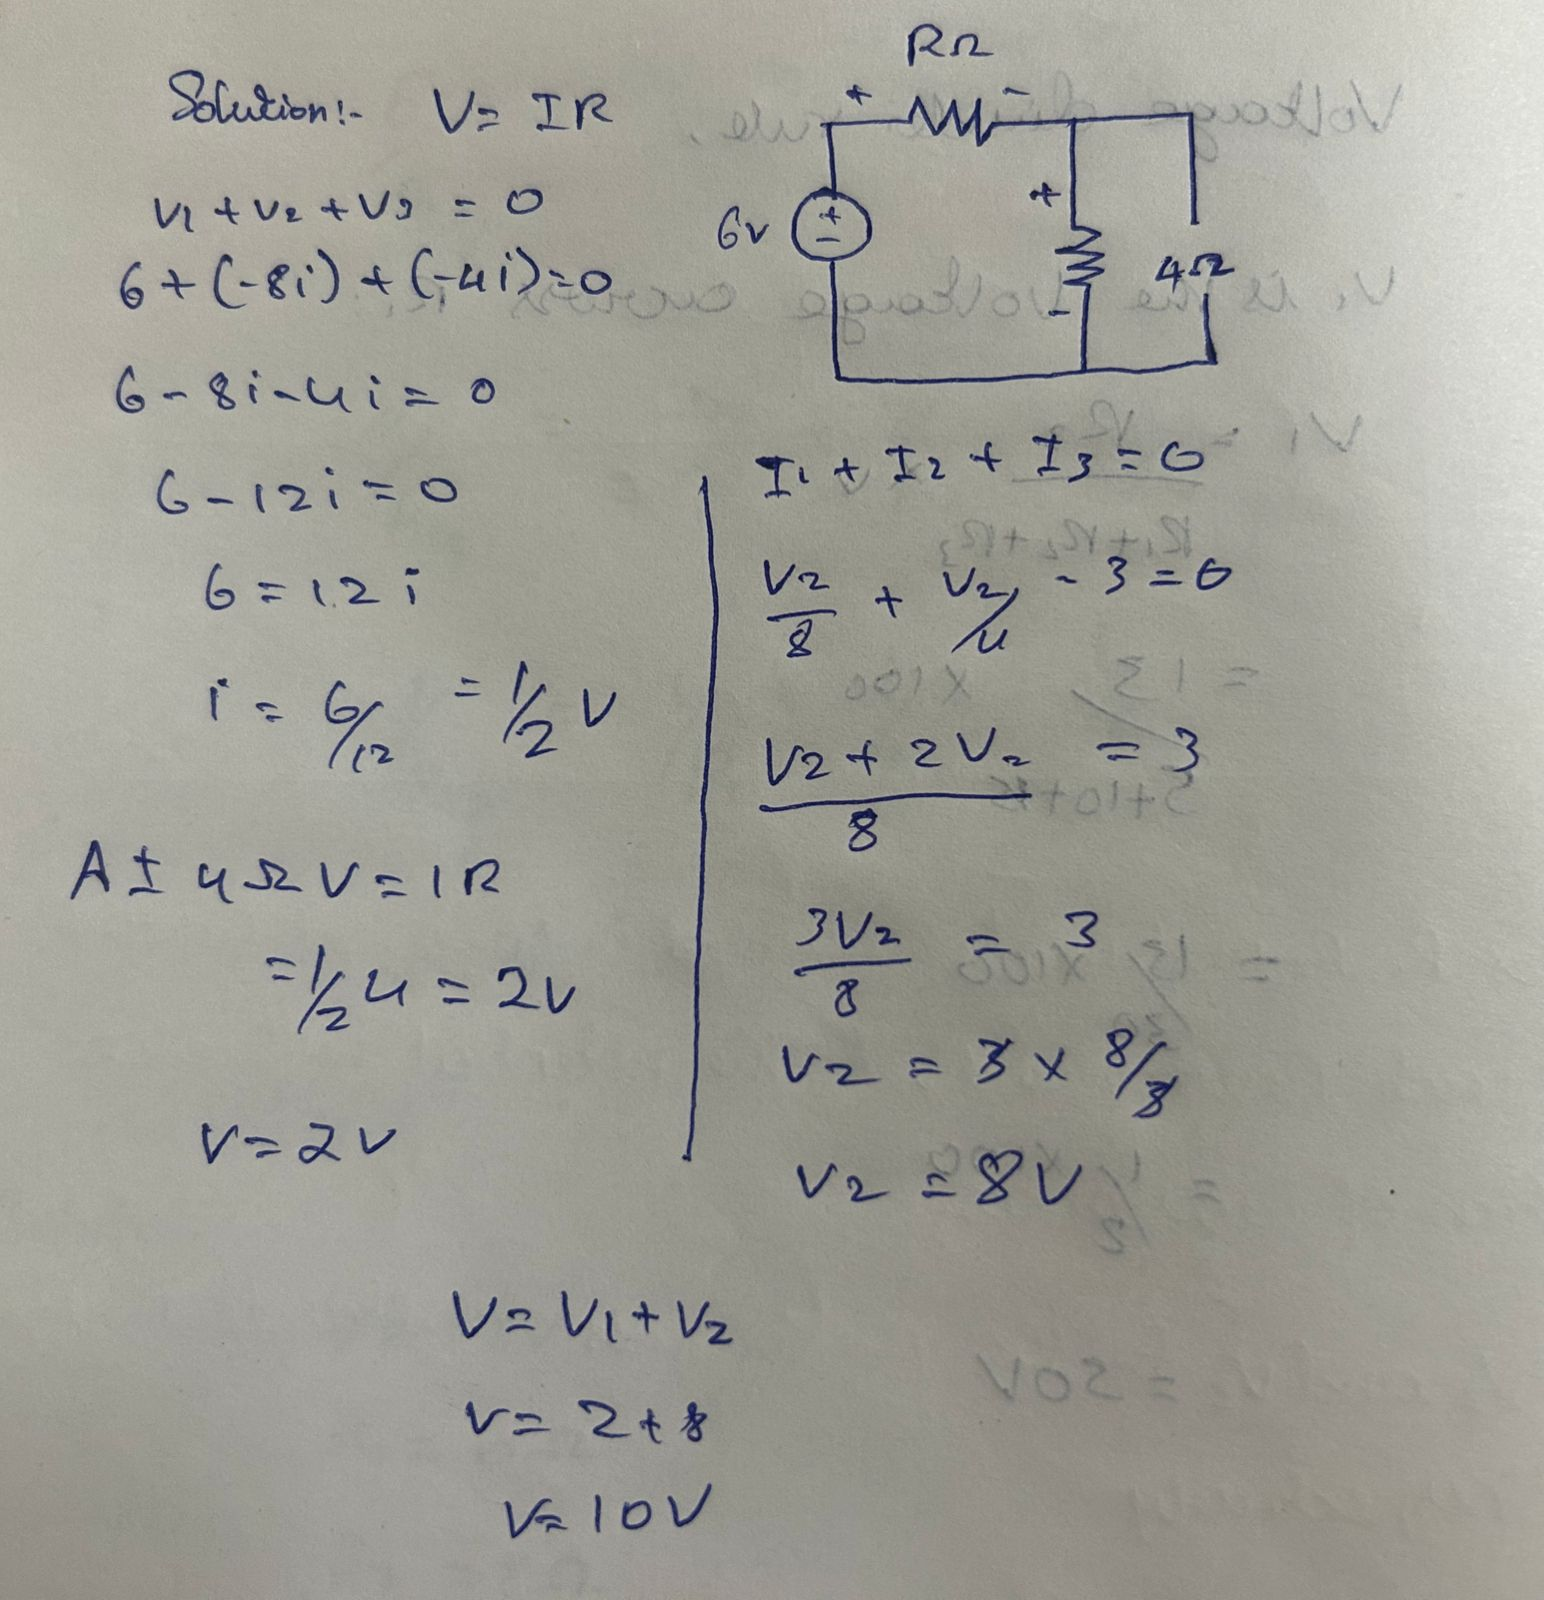 Solution:- V= IR
V1 + V2 + V3 = 0
6+(-8i)+(-4i)=0
6-8i-4i= 0
6-12i=0
6=12i
i = 6/12 = 1/2 V
At 4Ω V=IR
=1/2 4 = 2V
V=2V
RΩ
+ -
6v
+
-
+
-
4Ω
I1 + I2 + I3 = 0
V2/8 + V2/4 - 3 = 0
V2 + 2V2 / 8 = 3
3V2 / 8 = 3
V2 = 3 x 8/3
V2 = 8V
V= V1 + V2
V= 2+8
V= 10V